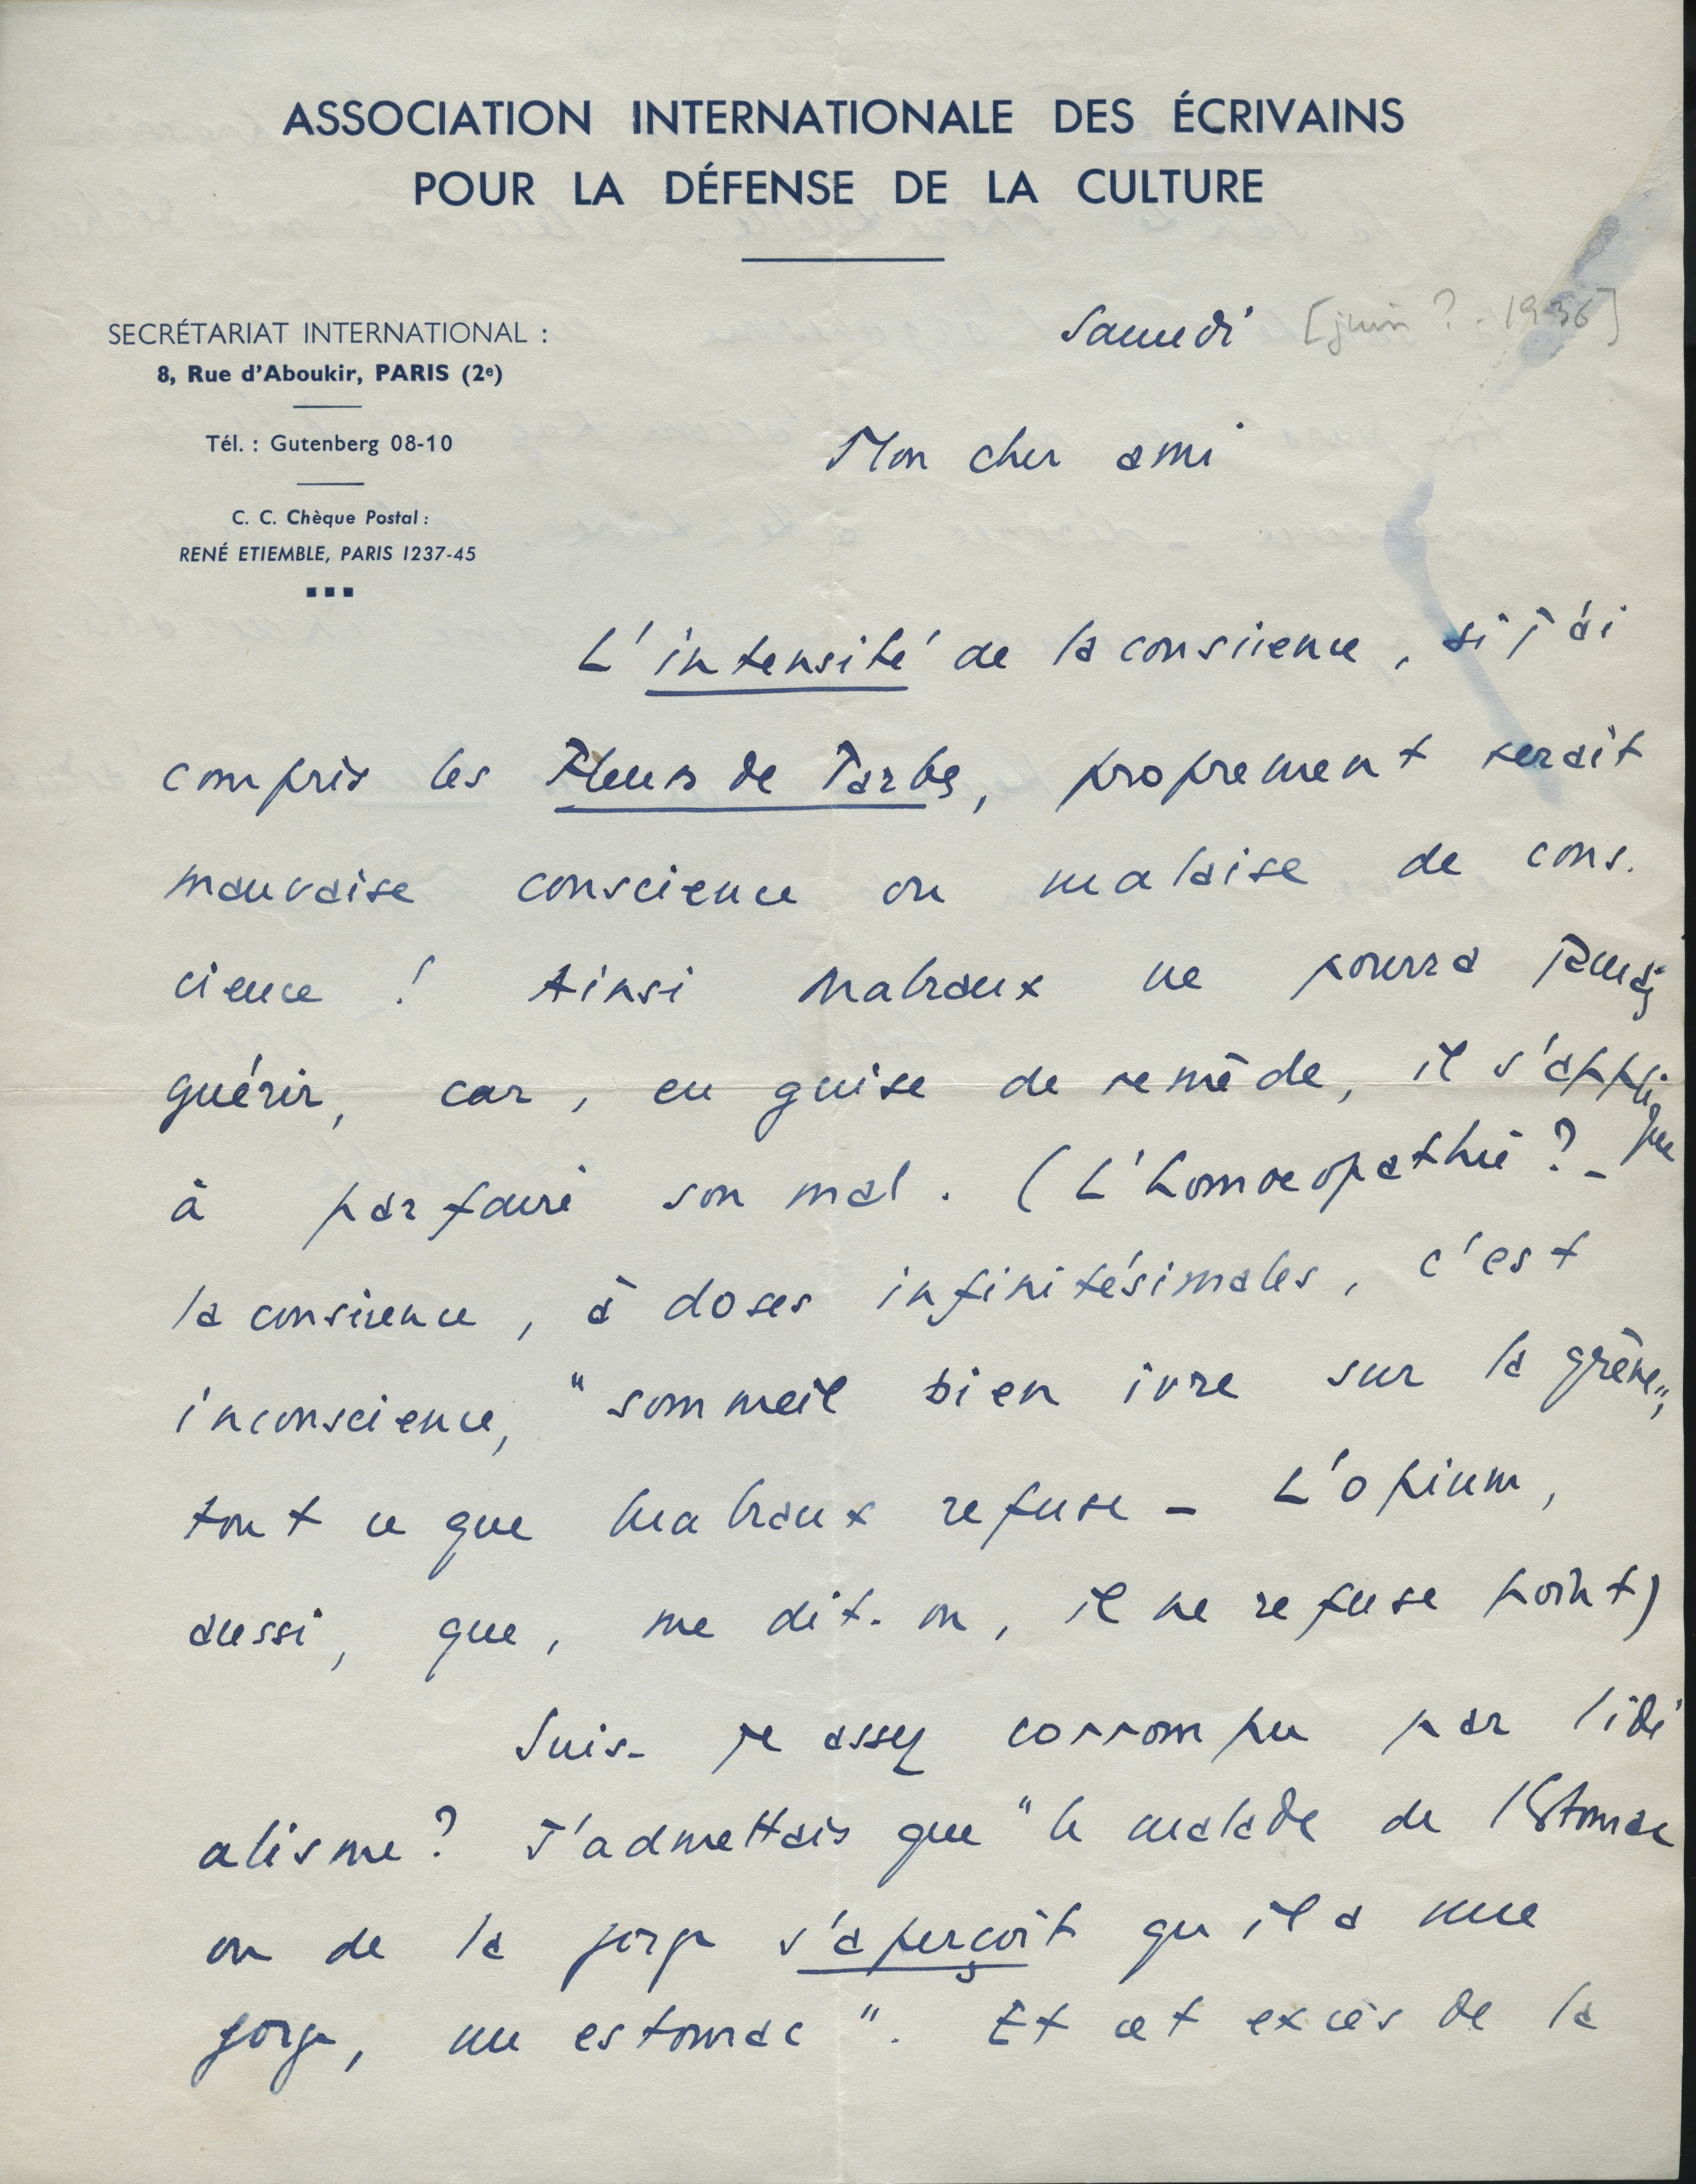 ASSOCIATION INTERNATIONALE DES ÉCRIVAINS
POUR LA DÉFENSE DE LA CULTURE
SECRÉTARIAT INTERNATIONAL :
8, Rue d'Aboukir, PARIS (2e)
Tél. : Gutenberg 08-10
C. C. Chèque Postal :
RENÉ ETIEMBLE, PARIS 1237-45
Samedi [juin ? - 1936]
Mon cher ami
L'intensité de la conscience, si j'ai
compris les Fleurs de Tarbes, proprement serait
mauvaise conscience ou malaise de cons-
cience ! Ainsi Malraux ne pourra jamais
guérir, car, en guise de remède, il s'applique
à parfaire son mal. (L'homoeopathie ? –
la conscience, à doses infinitésimales, c'est
inconscience, "sommeil bien ivre sur la grève",
tout ce que Malraux refuse – L'opium,
aussi, que, me dit-on, il ne refuse point)
Suis-je assez corrompu par l'idé
alisme ? J'admettais que "le malade de l'estomac
ou de la gorge s'aperçoit qu'il a une
gorge, un estomac". Et cet excès de la